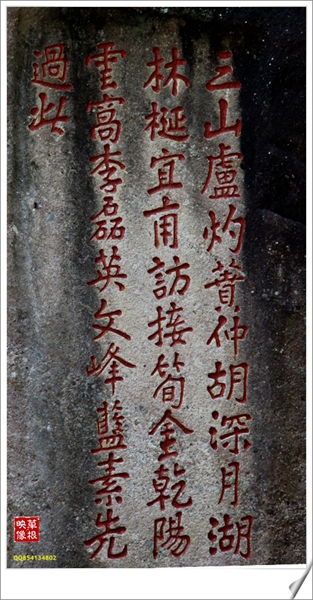 三山盧灼蕡仲胡深月湖
林梴宜甫訪接筍金乾陽
雲窩李磊英文峰藍素先
過此
華根映像
QQ854134802